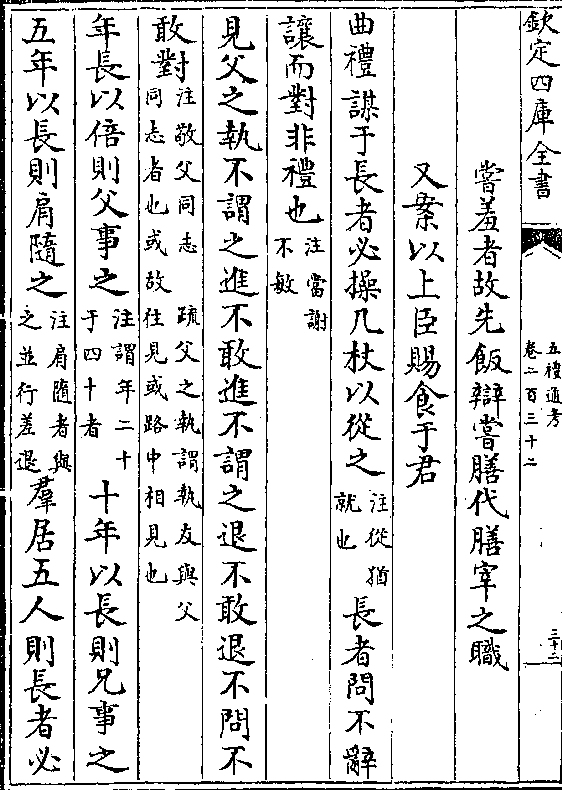 欽定四庫全書
五禮通考
卷二百三十二
三十二
嘗羞者故先飯辯嘗膳代膳宰之職
又案以上臣賜食于君
曲禮謀于長者必操几杖以從之注從猶就也長者問不辭
讓而對非禮也注當謝不敏
見父之執不謂之進不敢進不謂之退不敢退不問不
敢對注敬父同志疏父之執謂執友與父同志者也或故往見或路中相見也
年長以倍則父事之注謂年二十于四十者十年以長則兄事之
五年以長則肩隨之注肩隨者與之並行差退羣居五人則長者必